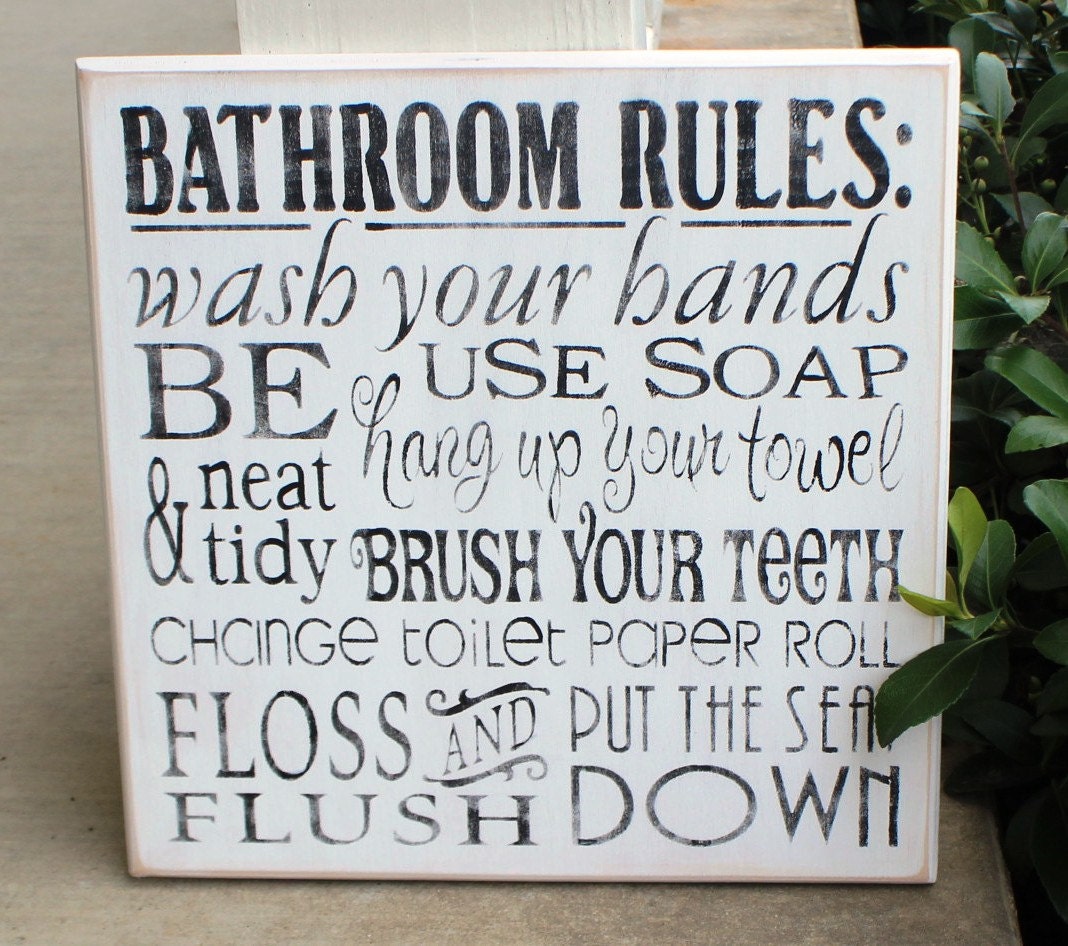 BATHROOM RULES:
wash your hands
BE
USE SOAP
hang up your towel
& neat
tidy
BRUSH YOUR TEETH
CHANGE TOILET PAPER ROLL
FLOSS AND
FLUSH
PUT THE SEAT
DOWN